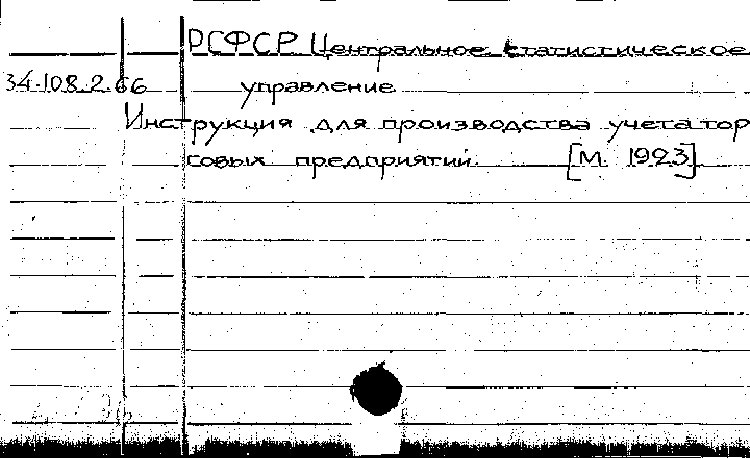 РСФСР Центральное статистическое
34-108.2.66 управление
Инструкция для производства учета тор
совых предприятий. [М. 1923]